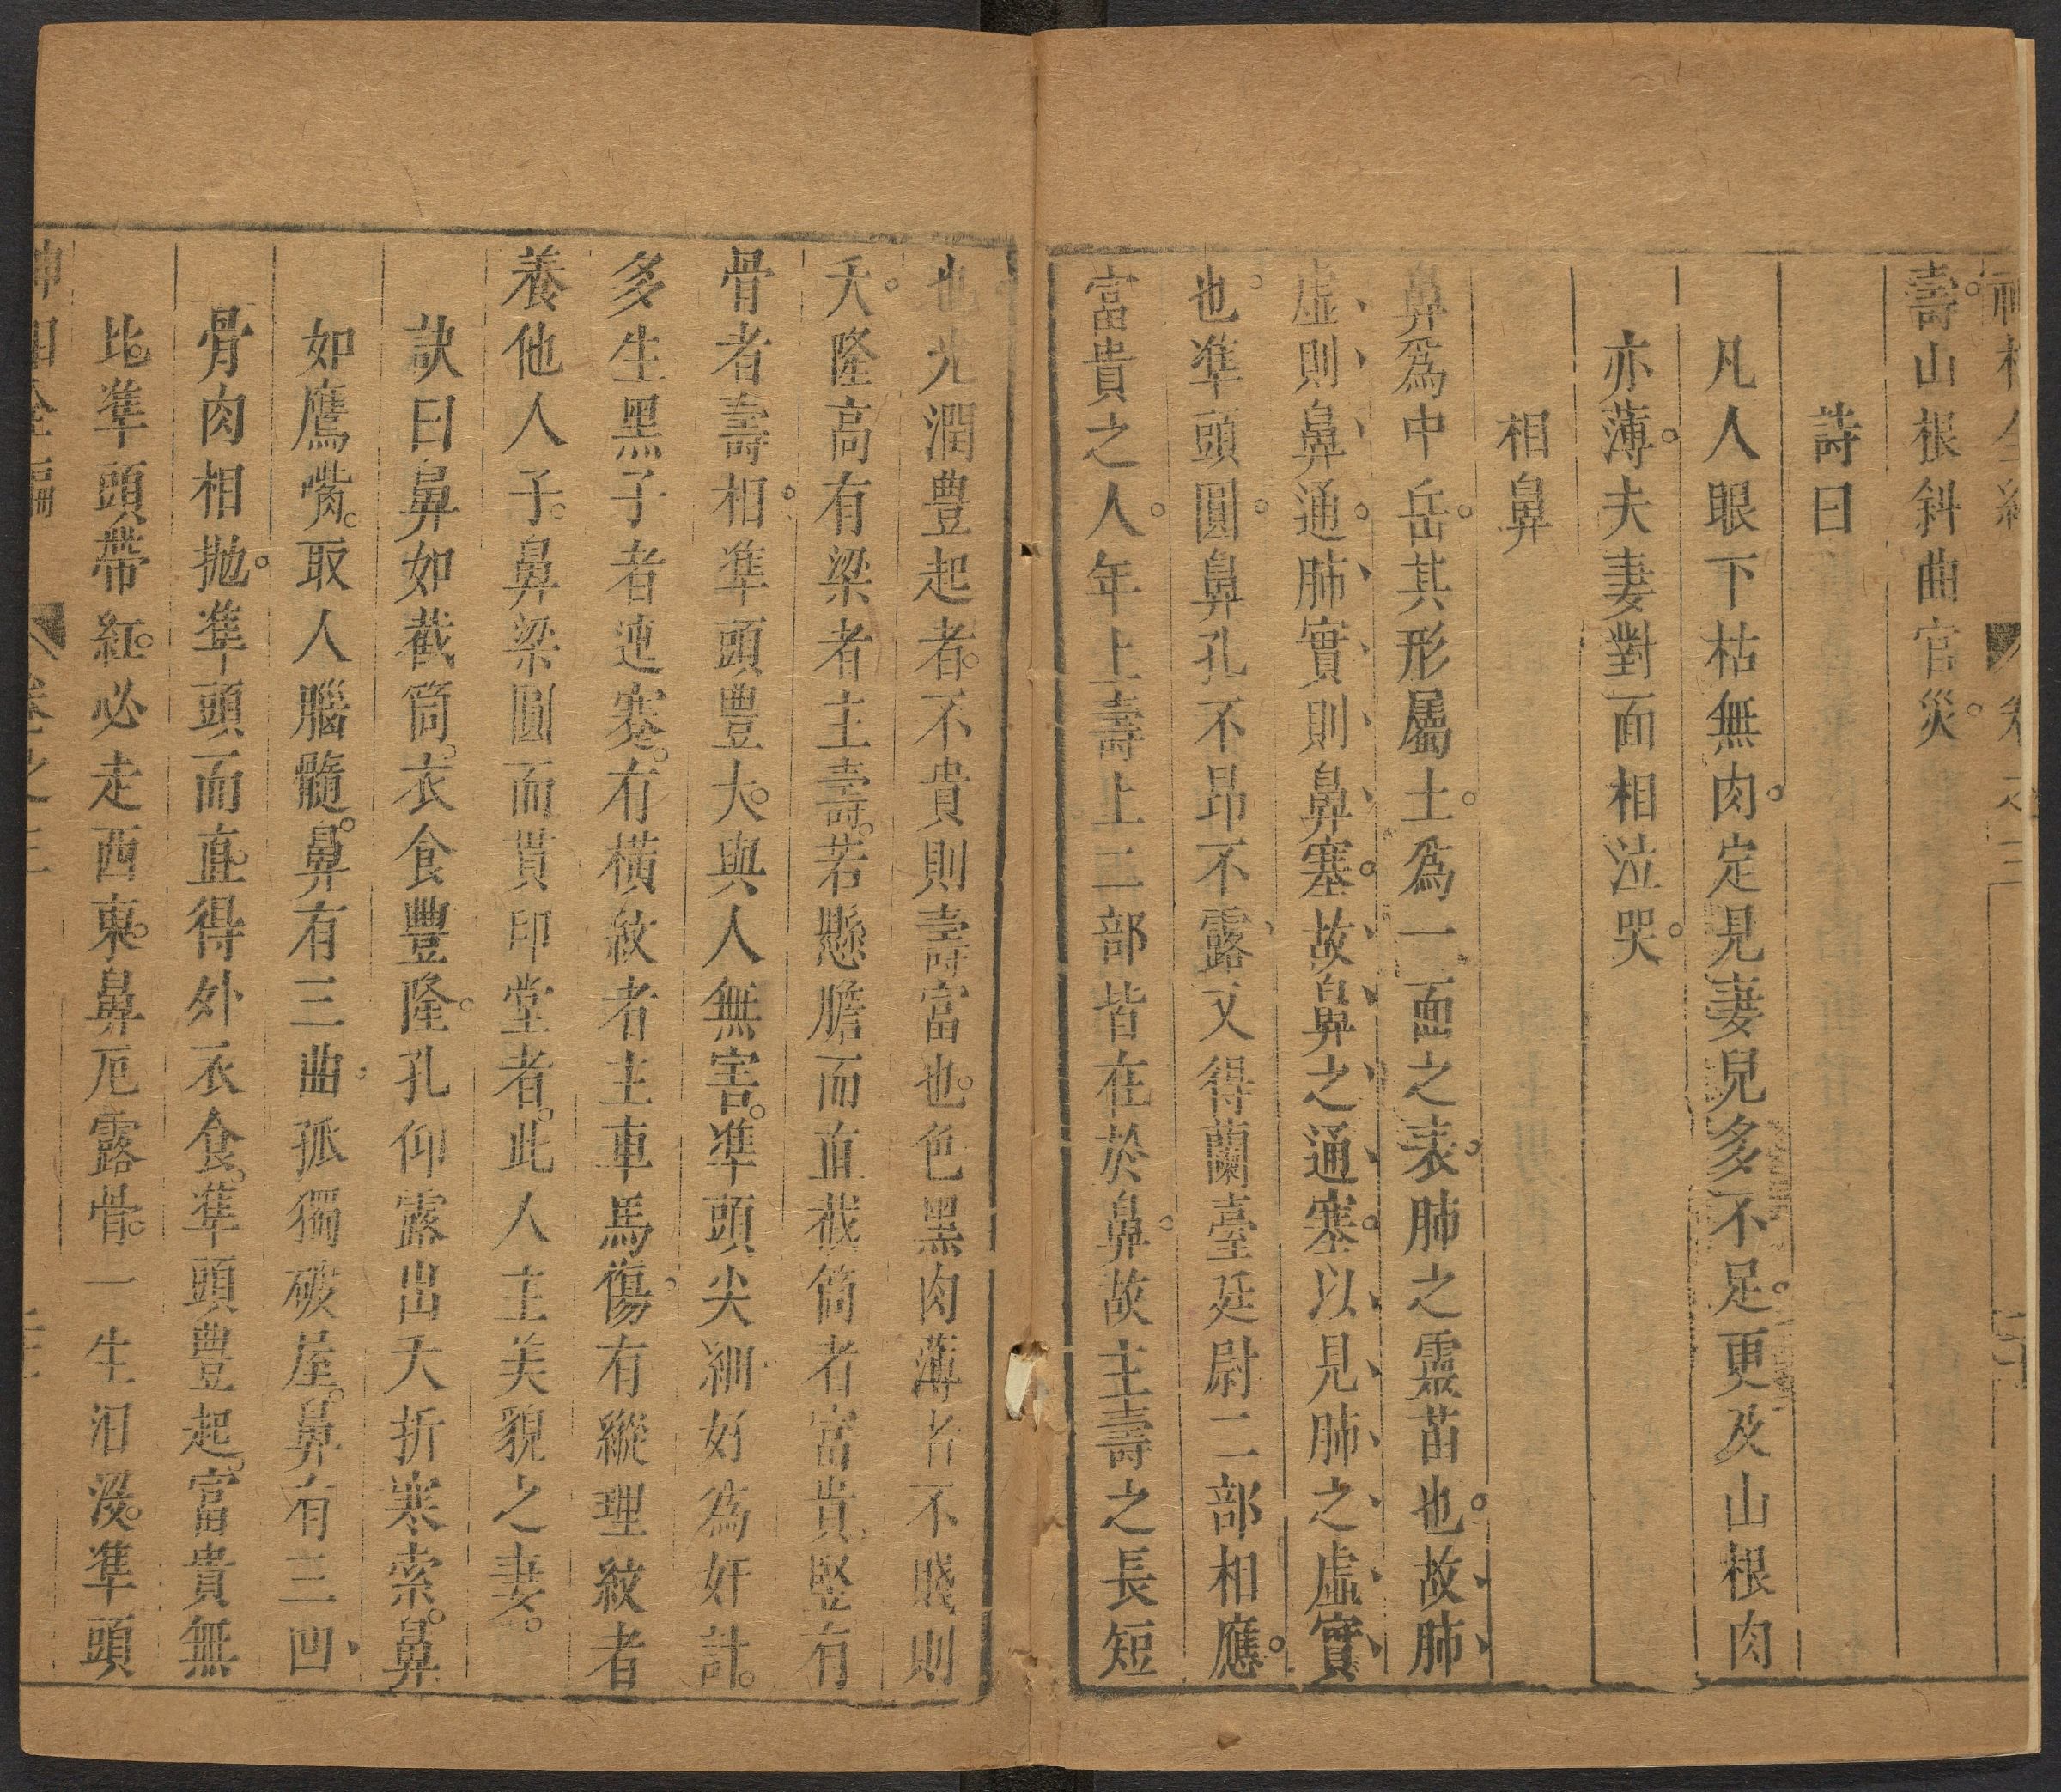 壽。山根斜曲官災。
詩曰
凡人眼下枯無肉。定見妻兒多不足。更及山根肉
亦薄。夫妻對面相泣哭。
相鼻
鼻爲中岳。其形屬土。爲一面之表。肺之靈苗也。故肺
虛則鼻通。肺實則鼻塞。故鼻之通塞。以見肺之虛實
也。凖頭圓。鼻孔不昂不露。又得蘭臺延尉二部相應。
富貴之人。年上壽上二部皆在於鼻。故主壽之長短
也。光潤豊起者。不貴則壽富也。色黑肉薄者不賤則
夭。隆高有梁者主壽。若懸膽而直截筒者富貴。堅有
骨者壽相。凖頭豊大。與人無害。凖頭尖細好為奸計。
多生黑子者迍蹇。有橫紋者主車馬傷。有縱理紋者
養他人子。鼻梁圓而貫印堂者。此人主美貌之妻。
訣曰鼻如截筒。衣食豐隆。孔仰露出夭折寒索。鼻
如鷹嘴。取人腦髓。鼻有三曲。孤獨破屋。鼻有三凹
骨肉相抛。凖頭而直。得外衣食。凖頭豊起。富貴無
比。凖頭帶紅。必走西東。鼻厄露骨。一生汨沒。凖頭